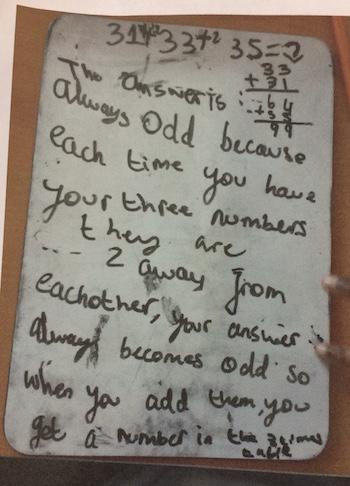 31 +2 33 +2 35 =
33
+ 31
64
+ 35
99
The answer is
always odd because
each time you have
your three numbers
they are
2 away from
eachother, your answer is
always becomes odd so
when you add them, you
get a number in the 3 times
table